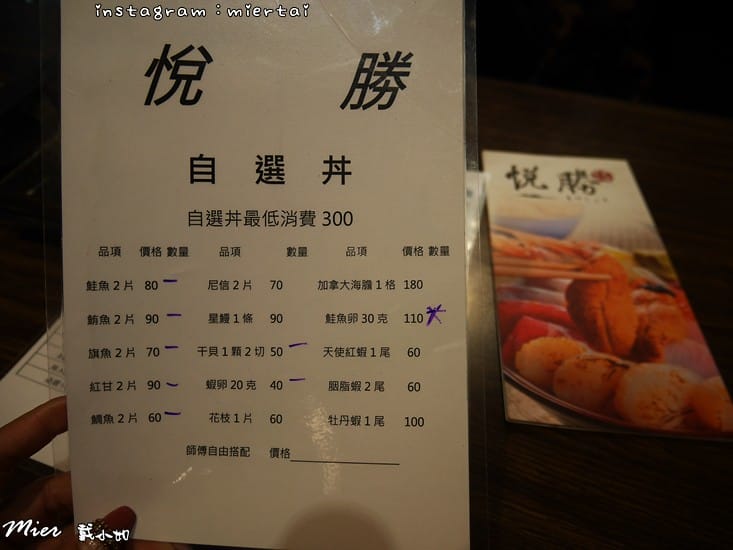 instagram：miertai
悅 勝
自 選 丼
自選丼最低消費 300
品項 價格 數量 品項 數量 品項 價格 數量
鮭魚 2 片 80 一 尼信 2 片 70 加拿大海膽 1 格 180
鮪魚 2 片 90 一 星鰻 1 條 90 鮭魚卵 30 克 110
旗魚 2 片 70 一 干貝 1 顆 2 切 50 一 天使紅蝦 1 尾 60
紅甘 2 片 90 一 蝦卵 20 克 40 一 胭脂蝦 2 尾 60
鯛魚 2 片 60 一 花枝 1 片 60 牡丹蝦 1 尾 100
師傅自由搭配 價格
悅 勝
Mier 戴小如